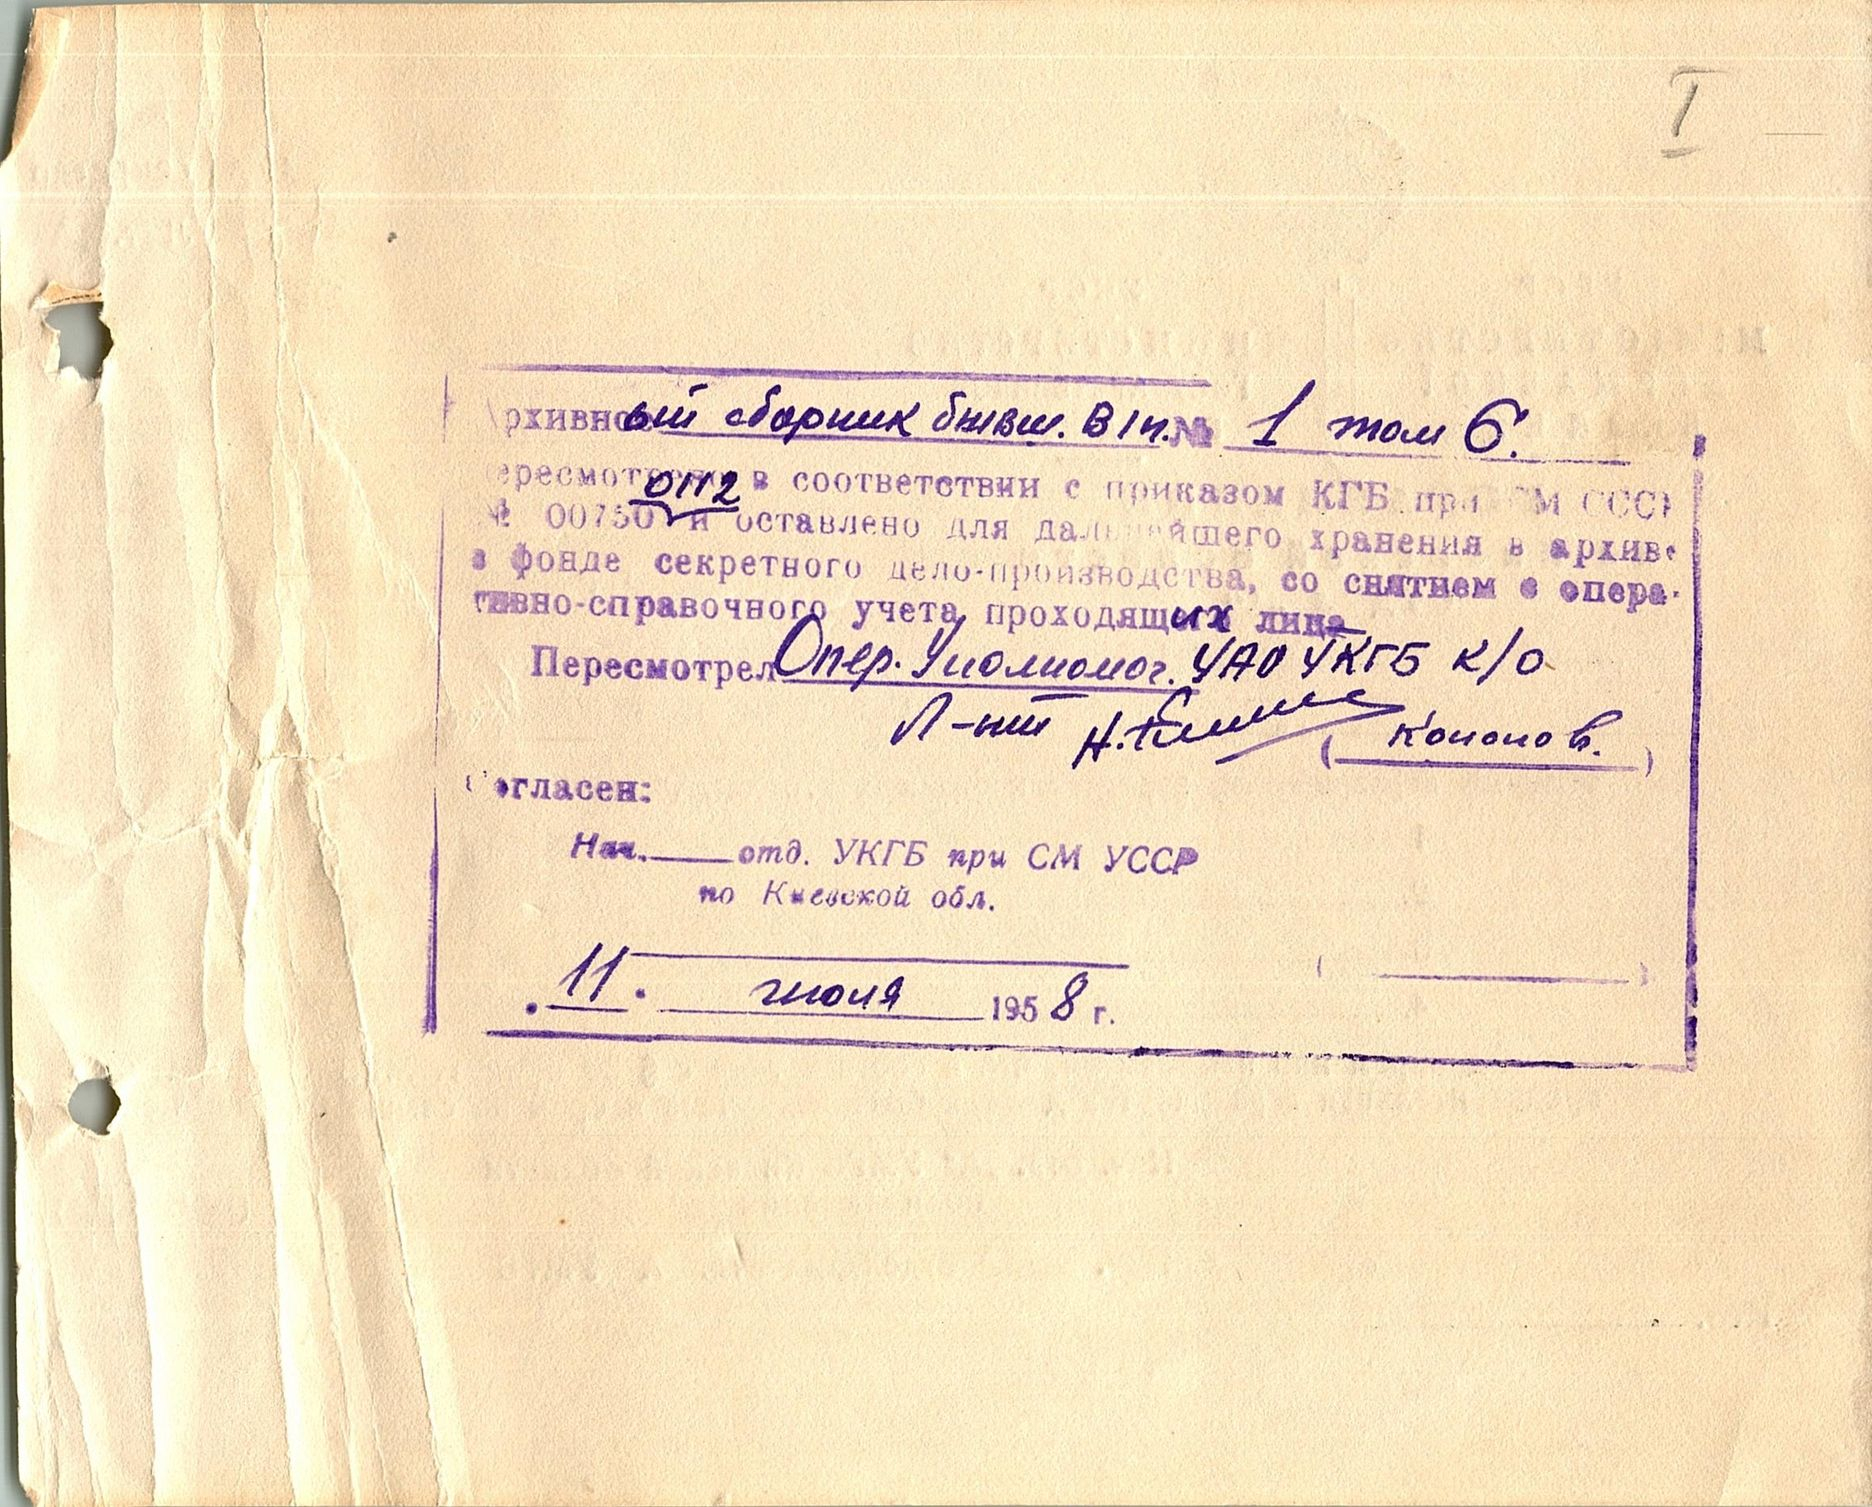 I
Архивный сборник бывш. В1п. № 1 том 6.
пересмотрено в соответствии с приказом КГБ при СМ СССР
0112
№ 00750 и оставлено для дальнейшего хранения в архиве
в фонде секретного дело-производства, со снятием с опера-
тивно-справочного учета проходящих лица
Пересмотрел Опер. Уполномоч. УАО УКГБ К/О
Л-нт (Кононов.)
Согласен:
Нач. ____ отд. УКГБ при СМ УССР
по Киевской обл.
( )
"11" июля 1958 г.